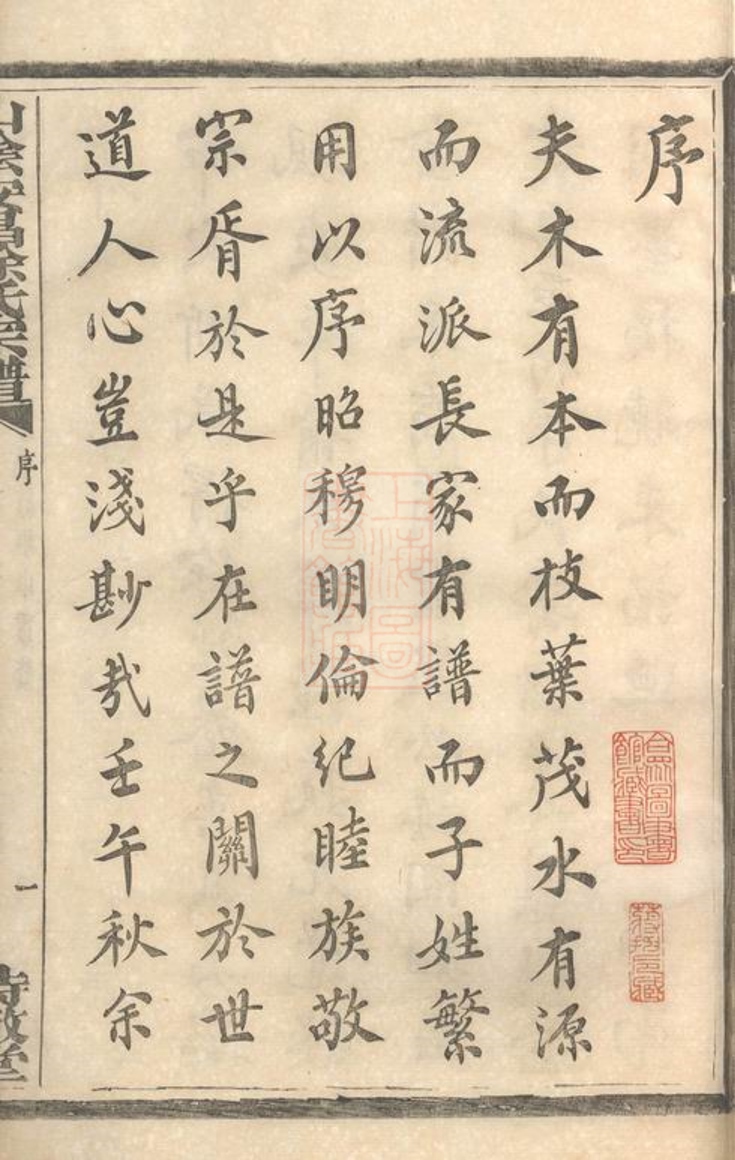 序
夫木有本而枝葉茂水有源
而流派長家有譜而子姓繁
用以序昭穆明倫紀睦族敬
宗胥於是乎在譜之關於世
道人心豈淺尠哉壬午秋余
山陰安昌徐氏宗譜
序
一
上海圖
書館藏